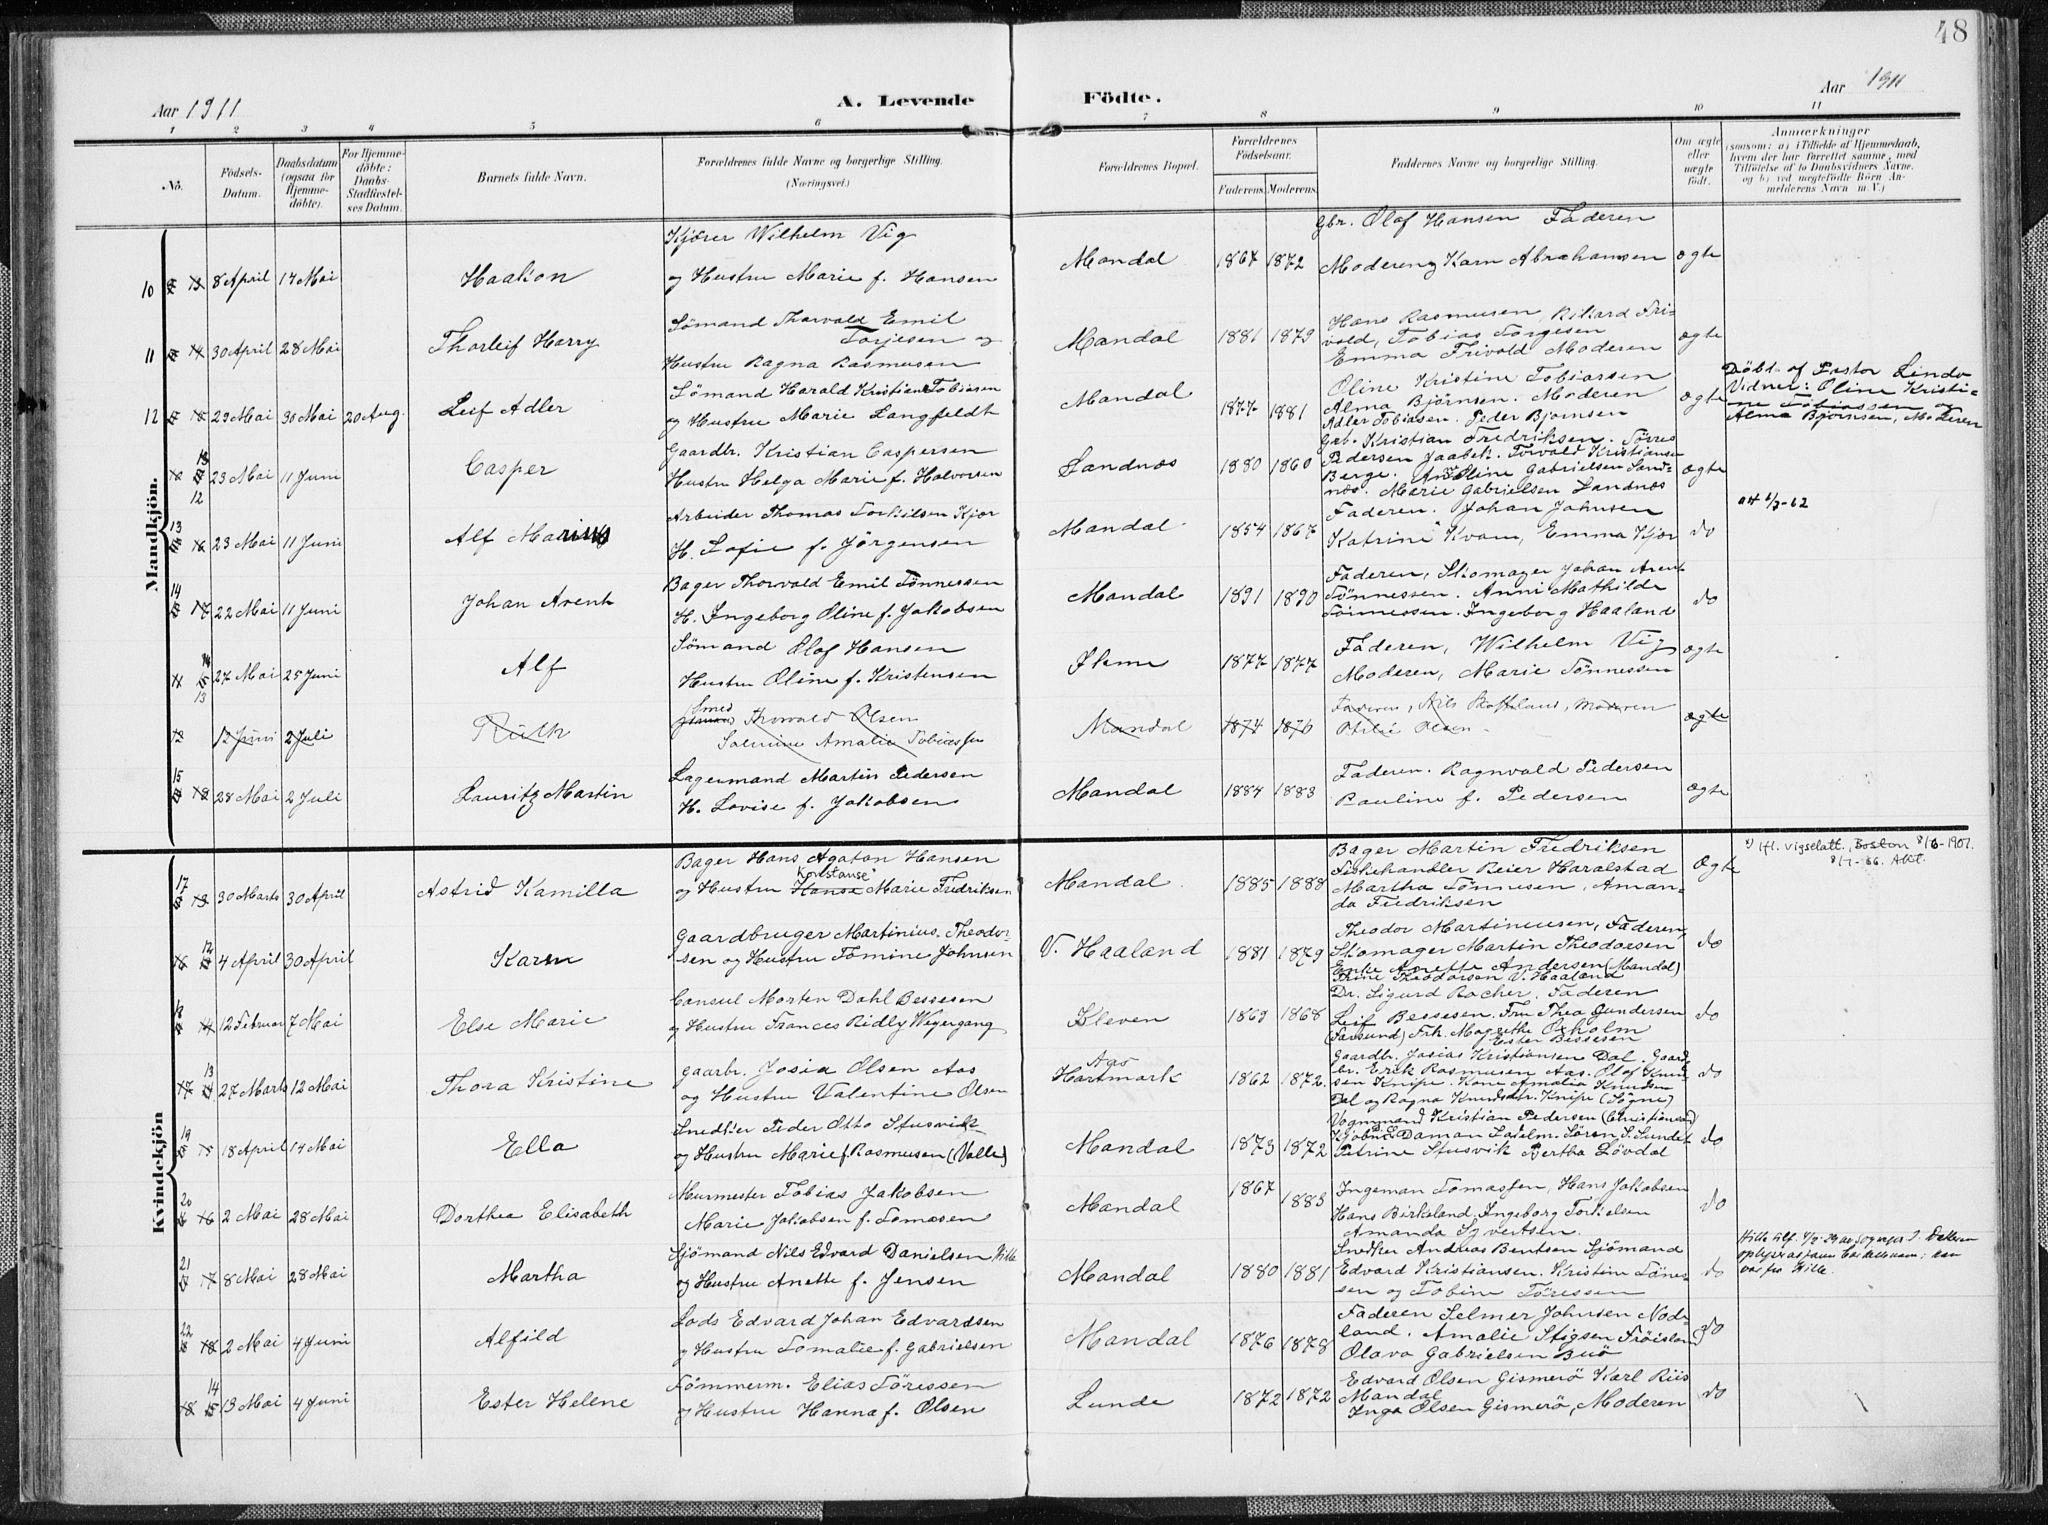 48
Aar 1911
A. Levende
Födte.
Aar 1911
1 2 3 4 5 6 7 8 9 10 11
No.
Födsels-Datum.
Daabsdatum (ogsaa for Hjemme-döbte).
For Hjemme-döbte: Daabs-Stadfæstel-ses Datum.
Barnets fulde Navn.
Forældrenes fulde Navne og borgerlige Stilling. (Næringsvei.)
Forældrenes Bopæl.
Forældrenes Födselsaar.
Faderens. Moderens.
Faddernes Navne og borgerlige Stilling.
Om ægte eller uægte födt.
Anmærkninger
(saasom: a) i Tilfælde af Hjemmedaab, hvem der har forrettet samme, med Tilföielse af to Daabsvidners Navne. og b) ved uægtefödte Börn An-melderens Navn m. V.)
Mandkjön.
10 8 April 14 Mai Haakon
Kjörer Wilhelm Vig
og Hustru Marie f. Hansen
Mandal 1867 1872
Gbr. Olaf Hansen Faderen
Moderen og Karn Abrahamsen
ægte
11 14 30 April 28 Mai Thorleif Harry
Sömand Thorvald Emil
Torjesen og
Hustru Ragna Rasmusen
Mandal 1881 1879
Hans Rasmusen, Rikard Fri-
vold, Tobias Torgesen
Emma Frivold Moderen
ægte
12 29 Mai 30 Mai 20 Aug. Leif Adler
Sömand Harald Kristian Tobiasen
og Hustru Marie Langfeldt
Mandal 1877 1881
Oline Kristine Tobiassen
Alma Björnsen. Moderen
Adler Tobiasen. Peder Bjørnsen
ægte
Döbt af Pastor Linde
Vidner: Oline Kristi-
ne Tobiassen og
Alma Bjørnsen, Moderen
12 23 Mai 11 Juni Casper
Gaardbr. Kristian Caspersen
Hustru Helga Marie f. Halvorsen
Landnæs 1880 1860
Grb. Kristian Fredriksen. Törres
Pedersen Jaabek. Torvald Kristiansen
Berge. Andline Gabrielsen Land-
næs. Marie Gabrielsen Landnæs
ægte
13 16 23 Mai 11 Juni Alf Marius
Arbeider Thomas Torkilsen Kjær
H. Sofie f. Jörgensen
Mandal 1854 1867
Faderen. Johan Johnsen
Katrine Kvam, Emma Kjær
do
14 17 22 Mai 11 Juni Johan Arent
Bager Thorvald Emil Tönnessen
H. Ingeborg Oline f. Jakobsen
Mandal 1891 1890
Faderen, Skomager Johan Arent
Tönnessen. Anni Mathilde
Tönnessen. Ingeborg Haaland
do
13 27 Mai 25 Juni Alf
Sömand Olaf Hansen
Hustru Oline f. Kristensen
1877 1877
Faderen, Wilhelm Vig
Moderen, Marie Tönnessen
ægte
12 Juni 2 Juli Ruth
Smed Thorvald Olsen
Amalie Tobiassen
Mandal 1874 1876
Faderen, Nils, Moderen
Olsen
ægte
15 28 Mai 2 Juli Lauritz Martin
Lagermand Martin Pedersen
H. Lovise f. Jakobsen
Mandal 1884 1883
Faderen. Ragnvald Pedersen
Pauline f. Pedersen
ægte
Kvindekjön
17 30 Marts 30 April Astrid Kamilla
Bager Hans Agaton Hansen
Konstanse
og Hustru Hansa Marie Fredriksen
Mandal. 1885 1888
Bager Martin Fredriksen
Fiskehandler Peier Haralstad
Martha Tönnesen, Aman-
da Fredriksen
Ægte
Ifl. vigselatt. Boston 8/6-1907.
12 4 April 30 April Karen
Gaardbruger Martinius Theodor-
sen og Hustru Tomine Johnsen
V. Haaland 1881 1879
Theodor Martinusen, Faderen,
Skomager Martin Theodorsen
Enke Anette Andersen (Mandal)
Trine Theodorsen V. Haaland
do
18 12 Februar 7 Mai Else Marie
Consul Morten Dahl Bessesen
og Hustru Frances Ridly Weyergang
Kleven 1869 1868
Dr. Sigurd Rocher. Faderen
Leif Bessesen. Fru Thea Gundersen
(Farsund) Frk. Magrethe Oxholm
Ester Bessesen
do
13 27 Marts 12 Mai Thora Kristine
Gaarbr. Josia Olsen Aas
og Hustru Valentine Olsen
Aas
Hartmark 1862 1872.
Gaardbr. Josias Kristiansen Dal. Gaard-
br. Erik Rasmusen Aas. Olaf Knud-
sen Knipe. Kone Amalia Knudsen
Dal og Ragna Knudsdtr. Knipe (Søgne)
do
19 18 April 14 Mai Ella
Snedker Peder Otto Stusvik
og Hustru Marie f. Rasmusen (Valle)
Mandal 1873 1872
Vognmand Kristian Pedersen (Christiansand)
Petrine Stusvik Bertha Lövdal
do
20 16 2 Mai 28 Mai Dorthea Elisabeth
Murmester Tobias Jakobsen
Marie Jakobsen f. Tomasen
Mandal 1867 1883
Ingeman Tomassen, Hans Jakobsen
Hans Birkeland. Ingeborg Torkelsen
Amanda Syvertsen.
do
21 17 8 Mai 28 Mai Martha
Sjömand Nils Edvard Danielsen Hille
og Hustru Anette f. Jensen
Mandal 1880 1881
Snedker Andreas Bentsen Sjömand
Edvard Kristiansen. Kristine Tönes-
sen og Tobine Töressen
do
22 18 2 Mai 4 Juni Alfild
Lods Edvard Johan Edvardsen
og Hustru Tomalie f. Gabrielsen
Mandal 1876 1878
Faderen Selmer Johnsen Node-
land. Amalie Stigsen Fröisland
Olava Gabrielsen Buö
do
14 13 Mai 4 Juni Ester Helene
Tömmerm. Elias Töressen
og Hustru Hanna f. Olsen
Lunde 1872 1872
Edvard Olsen Gismerö Karl Riis
Mandal
Inga Olsen Gismerö, Moderen
do